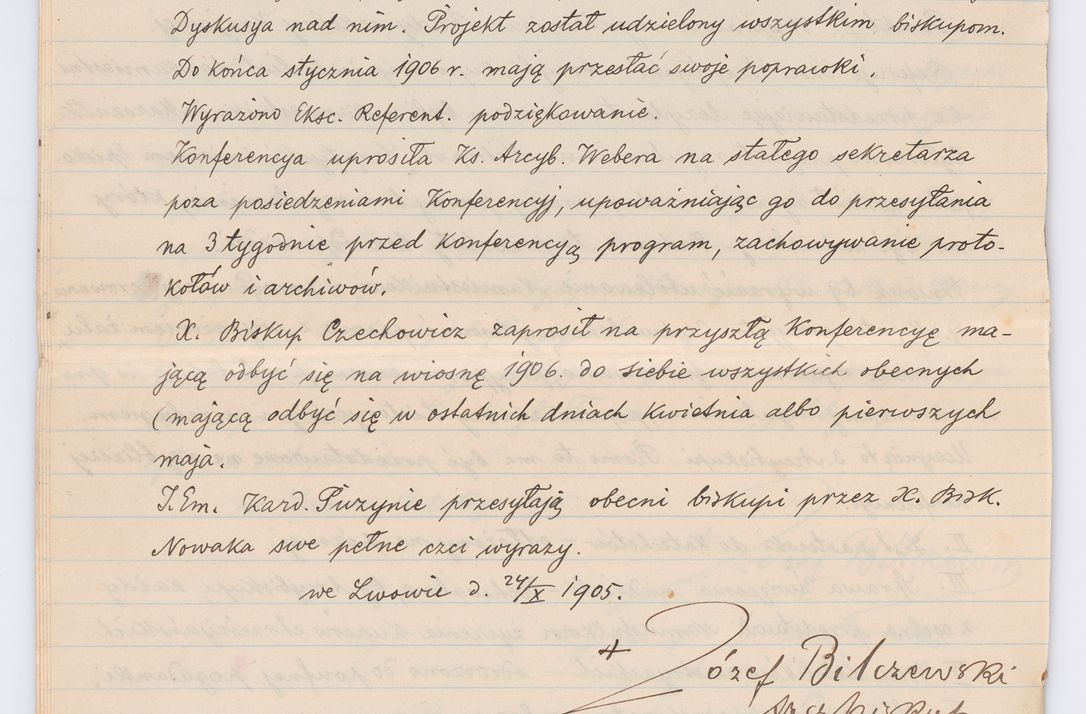 Dyskusya nad nim. Projekt został udzielony wszystkim biskupom.
Do końca stycznia 1906 r. mają przesłać swoje poprawki.
Wyrażono Eksc. Referent. podziękowanie.
Konferencya uprosiła Ks. Arcyb. Webera na stałego sekretarza
poza posiedzeniami Konferencyj, upoważniając go do przesyłania
na 3 tygodnie przed Konferencyą program, zachowywanie proto-
kołów i archiwów.
X. Biskup Czechowicz zaprosił na przyszłą Konferencyę ma-
jącą odbyć się na wiosnę 1906. do siebie wszystkich obecnych
(mającą odbyć się w ostatnich dniach Kwietnia albo pierwszych
maja.
J. Em. Kard. Puzynie przesyłają obecni biskupi przez X. Bisk.
Nowaka swe pełne czci wyrazy.
we Lwowie d. 24/X 1905.
+ Józef Bilczewski